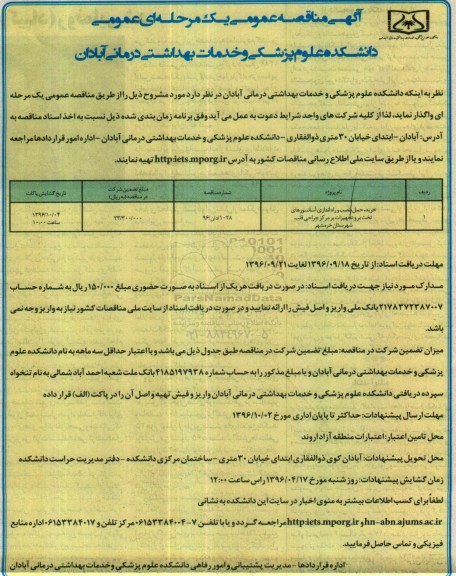 آگهی مناقصه عمومی یک مرحله ای عمومی
دانشکده علوم پزشکی و خدمات بهداشتی درمانی آبادان
نظر به اینکه دانشکده علوم پزشکی و خدمات بهداشتی درمانی آبادان در نظر دارد مورد مشروح ذیل را از طریق مناقصه عمومی یک مرحله
ای واگذار نماید، لذا از کلیه شرکت های واجد شرایط دعوت به عمل می آید وفق برنامه زمان بندی شده ذیل نسبت به اخذ اسناد مناقصه به
آدرس: آبادان - ابتدای خیابان ۳۰ متری ذوالفقاری - دانشکده علوم پزشکی و خدمات بهداشتی درمانی آبادان - اداره امور قراردادها مراجعه
نمایند و یا از طریق سایت ملی اطلاع رسانی مناقصات کشور به آدرس http:iets.mporg.ir تهیه نمایند.
ردیف نام پروژه شماره مناقصه مبلغ تضمین شرکت در مناقصه (به ریال) تاریخ گشایش پاکات
۱ خرید، حمل، نصب و راه اندازی آسانسورهای
تخت بر و تجهیزات بر مرکز جراحی قلب
شهرستان خرمشهر
۲۳/۳۰۰/۰۰۰
۱۳۹۶/۱۰/۰۴
ساعت ۱۰:۰۰
مهلت دریافت اسناد: از تاریخ ۱۳۹۶/۰۹/۱۸ لغایت ۱۳۹۶/۰۹/۲۱
مدارک مورد نیاز جهت دریافت اسناد: در صورت دریافت هر یک از اسناد به صورت حضوری مبلغ ۱۵۰/۰۰۰ ریال به شماره حساب
۲۱۷۸۳۷۲۳۸۷۰۰۷ بانک ملی واریز و اصل فیش را ارائه نمایید و در صورت دریافت اسناد از سایت ملی مناقصات کشور نیاز به واریز وجه نمی
باشد.
میزان تضمین شرکت در مناقصه: مبلغ تضمین شرکت در مناقصه طبق جدول ذیل می باشد و با اعتبار حداقل سه ماهه به نام دانشکده علوم
پزشکی و خدمات بهداشتی درمانی آبادان و یا مبلغ مذکور را به حساب شماره ۴۱۸۵۱۹۷۹۳۸ بانک ملت شعبه احمد آباد شمالی به نام تنخواه
سپرده دریافتی دانشکده علوم پزشکی و خدمات بهداشتی درمانی آبادان واریز و فیش تهیه و اصل آن را در پاکت (الف) قرار داده
مهلت ارسال پیشنهادات: حداکثر تا پایان اداری مورخ ۱۳۹۶/۱۰/۰۲
محل تامین اعتبار: اعتبارات منطقه آزاد اروند
محل تحویل پیشنهادات: آبادان کوی ذوالفقاری ابتدای خیابان ۳۰ متری - ساختمان مرکزی دانشکده - دفتر مدیریت حراست دانشکده
زمان گشایش پیشنهادات: روز شنبه مورخ ۱۳۹۶/۰۴/۱۷ راس ساعت ۱۲:۰۰
لطفاً برای کسب اطلاعات بیشتر به منوی اخبار در سایت این دانشکده به نشانی
hn-abn.ajums.ac.ir و http:iets.mporg.ir مراجعه گردد و یا با تلفن ۷-۰۶۱۵۳۳۸۴۰۰۴ مرکز تلفن و ۰۶۱۵۳۳۸۴۰۱۷ اداره منابع
فیزیکی و تماس حاصل فرمایید.
اداره قراردادها - مدیریت پشتیبانی و امور رفاهی دانشکده علوم پزشکی و خدمات بهداشتی درمانی آبادان